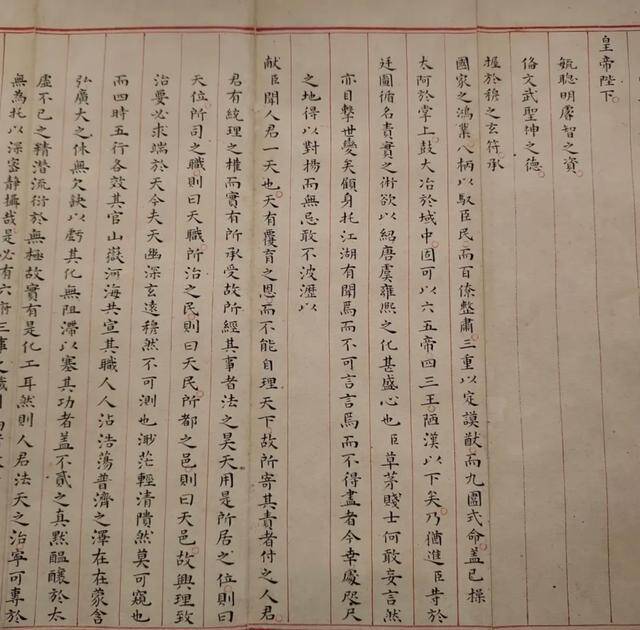 皇帝陛下
毓聰明睿智之資
俻文武聖神之德
握於穆之玄符承
國家之鴻業八柄以馭臣民而百僚整肅三重以定謨猷而九圍式命蓋已操
太阿於掌上鼓大冶於域中固可以六五帝四三王陋漢以下矣乃猶進臣等於
廷圖循名責實之術欲以紹唐虞雍熙之化甚盛心也臣草茅賤士何敢妄言然
亦目擊世變矣顧身托江湖有聞焉而不可言言焉而不得盡者今幸處咫尺
之地得以對揚而無忌敢不披瀝以
獻臣聞人君一天也天有覆育之恩而不能自理天下故所寄其責者付之人君
君有統理之權而實有所承受故所經其事者法之昊天用是所居之位則曰
天位所司之職則曰天職所治之民則曰天民所都之邑則曰天邑故興理致
治要必求端於天今夫天幽深玄遠穆然不可測也渺茫輕清隤然莫可窺也
而四時五行各效其官山嶽河海共宣其職人人沾浩蕩普濟之澤在在蒙含
弘廣大之休無欠缺以虧其化無阻滯以塞其功者蓋不貳之真默醞釀於太
虛不已之精潛流衍於無極故實有是化工耳然則人君法天之治寧可專於
無為托以深密靜攝哉是必有六府三事之職